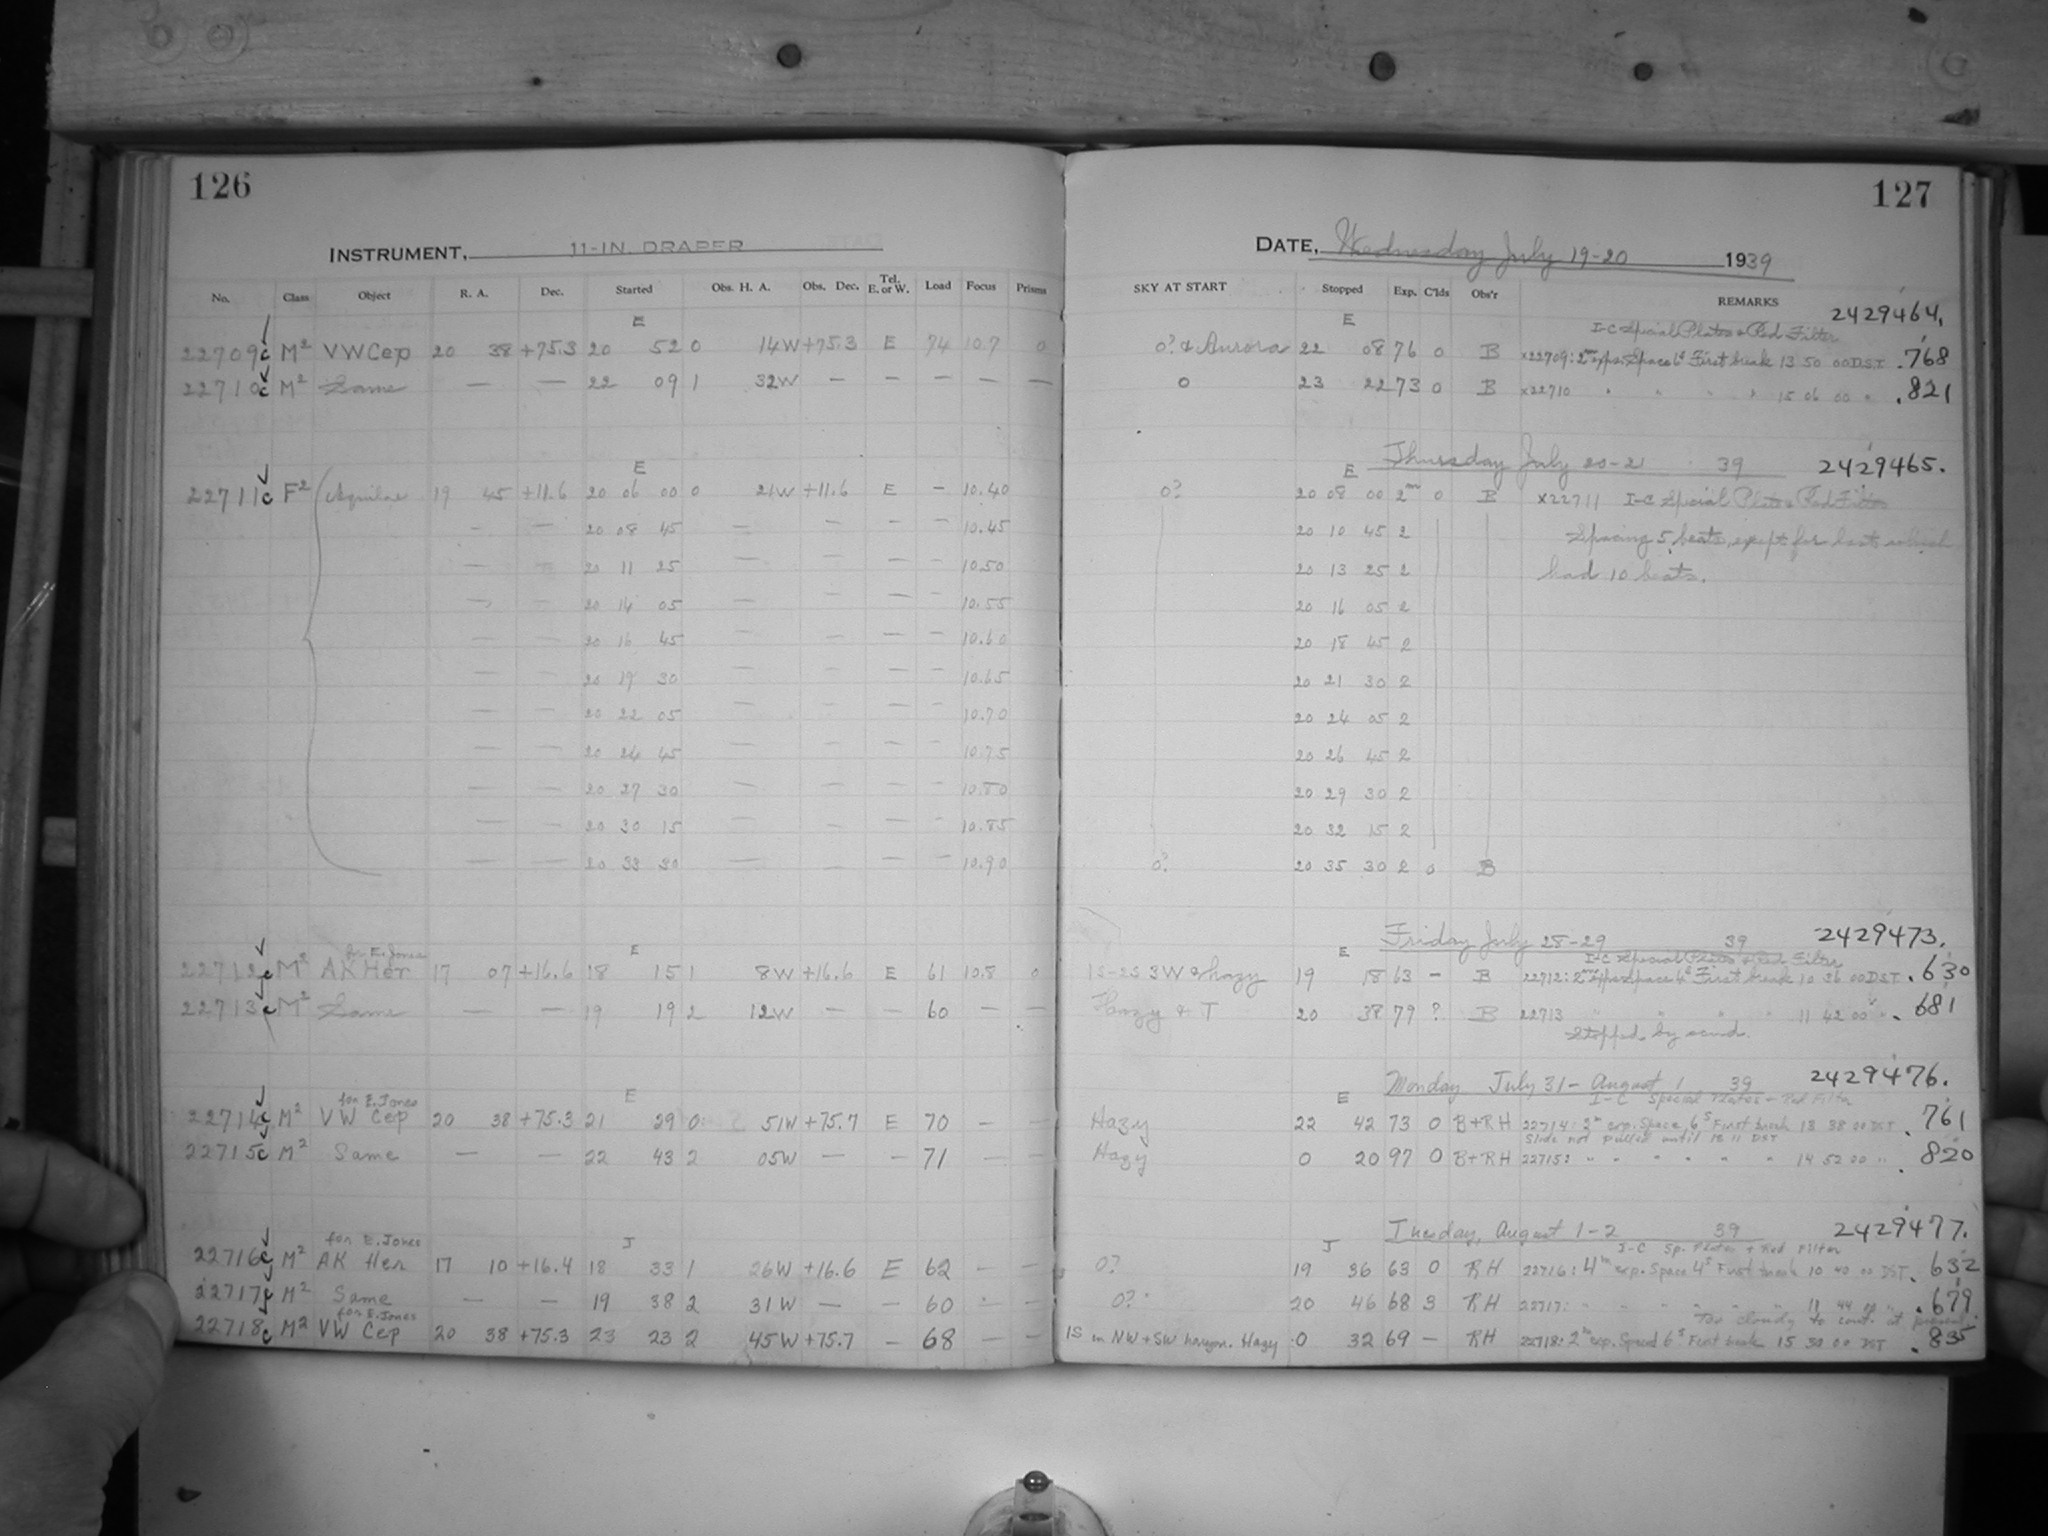 126
INSTRUMENT, 11-IN. DRAPER
No. Class Object R. A. Dec. Started Obs. H. A. Obs. Dec. Tel. E. or W. Load Focus Prisms
E
22709c M2 VW Cep 20 38 +75.3 20 52 0 14W +75.3 E 74 10.7 0
22710c M2 Same — — 22 09 1 32W — — — — —
E
22711c F2 Aquilae 19 45 +11.6 20 06 00 0 21W +11.6 E — 10.40
— — 20 08 45 — — — — 10.45
— — 20 11 25 — — — — 10.50
— — 20 14 05 — — — — 10.55
— — 20 16 45 — — — — 10.60
— — 20 19 30 — — — — 10.65
— — 20 22 05 — — — — 10.70
— — 20 24 45 — — — — 10.75
— — 20 27 30 — — — — 10.80
— — 20 30 15 — — — — 10.85
— — 20 33 30 — — — — 10.90
for E. Jones E
22712c M2 AK Her 17 07 +16.6 18 15 1 8W +16.6 E 61 10.8 0
22713c M2 Same — — 19 19 2 12W — — 60 — —
for E. Jones E
22714c M2 VW Cep 20 38 +75.3 21 29 0 51W +75.7 E 70 — —
22715c M2 Same — — 22 43 2 05W — — 71 — —
for E. Jones J
22716c M2 AK Her 17 10 +16.4 18 33 1 26W +16.6 E 62 — —
22717c M2 Same — — 19 38 2 31W — — 60 — —
for E. Jones
22718c M2 VW Cep 20 38 +75.3 23 23 2 45W +75.7 — 68 — —
127
DATE, Wednesday July 19-20 1939
SKY AT START Stopped Exp. C'lds Obs'r REMARKS
2429464.
E I-C Special Plates + Red Filter
0? + Aurora 22 08 76 0 B x22709: 2m exp. Space 6s First break 13 50 00 DST .768
0 23 22 73 0 B x22710 " " " " 15 06 00 " .821
E Thursday July 20-21 39 2429465.
0? 20 08 00 2m 0 B x22711 I-C Special Plate + Red Filter
20 10 45 2 Spacing 5 beats except for last which
20 13 25 2 had 10 beats.
20 16 05 2
20 18 45 2
20 21 30 2
20 24 05 2
20 26 45 2
20 29 30 2
20 32 15 2
0? 20 35 30 2 0 B
Friday July 28-29 39 2429473.
E I-C Special Plates + Red Filter
1S-2S 3W + hazy 19 18 63 — B 22712: 2m exp. Space 4s First break 10 36 00 DST .630
Hazy + T 20 38 79 ? B 22713 " " " " 11 42 00 " .681
Stopped by
Monday July 31- August 1 39 2429476.
E I-C Special Plates + Red Filter
Hazy 22 42 73 0 B+RH 22714: 2m exp. Space 6s First break 13 38 00 DST .761
Slide not pulled until DST
Hazy 0 20 97 0 B+RH 22715: " " " " " " 14 52 00 " .820
Tuesday, August 1-2 39 2429477.
J I-C Sp. Plates + Red Filter
0? 19 36 63 0 RH 22716: 4m exp. Space 4s First break 10 40 00 DST .632
0? 20 46 68 3 RH 22717: " " " " " 11 44 00 " .679
Too cloudy to cont. at present.
1S in NW + SW horizon. Hazy 0 32 69 — RH 22718: 2m exp. Spaced 6s First break 15 30 00 DST .835